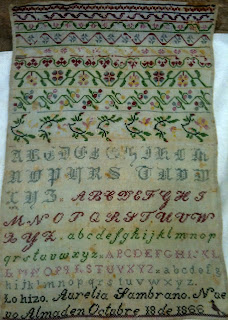 ABCDEFGHIJKLM
NOPQRSTUVW
XYZ. ABCDEFGHI
MNOPQRSTUVW
XYZ. abcdefghijklmnop
qrstuvwxyz. ABCDEFGH
MNOPQRSTUVXYZ. abcdefg
hijklmnopqrstuvwxyz.
Lo hizo. Aurelia Sambrano. Nue
vo Almaden Octubre 18 de 1866